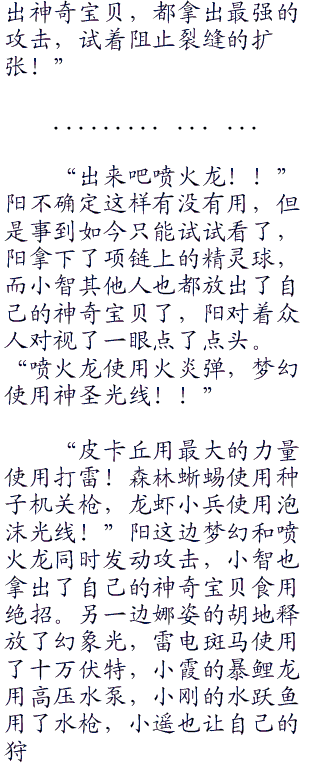 出神奇宝贝，都拿出最强的
攻击，试着阻止裂缝的扩
张！”
......... ... ...
“出来吧喷火龙！！”
阳不确定这样有没有用，但
是事到如今只能试试看了，
阳拿下了项链上的精灵球，
而小智其他人也都放出了自
己的神奇宝贝了，阳对着众
人对视了一眼点了点头。
“喷火龙使用火炎弹，梦幻
使用神圣光线！！”
“皮卡丘用最大的力量
使用打雷！森林蜥蜴使用种
子机关枪，龙虾小兵使用泡
沫光线！”阳这边梦幻和喷
火龙同时发动攻击，小智也
拿出了自己的神奇宝贝食用
绝招。另一边娜姿的胡地释
放了幻象光，雷电斑马使用
了十万伏特，小霞的暴鲤龙
用高压水泵，小刚的水跃鱼
用了水枪，小遥也让自己的
狩